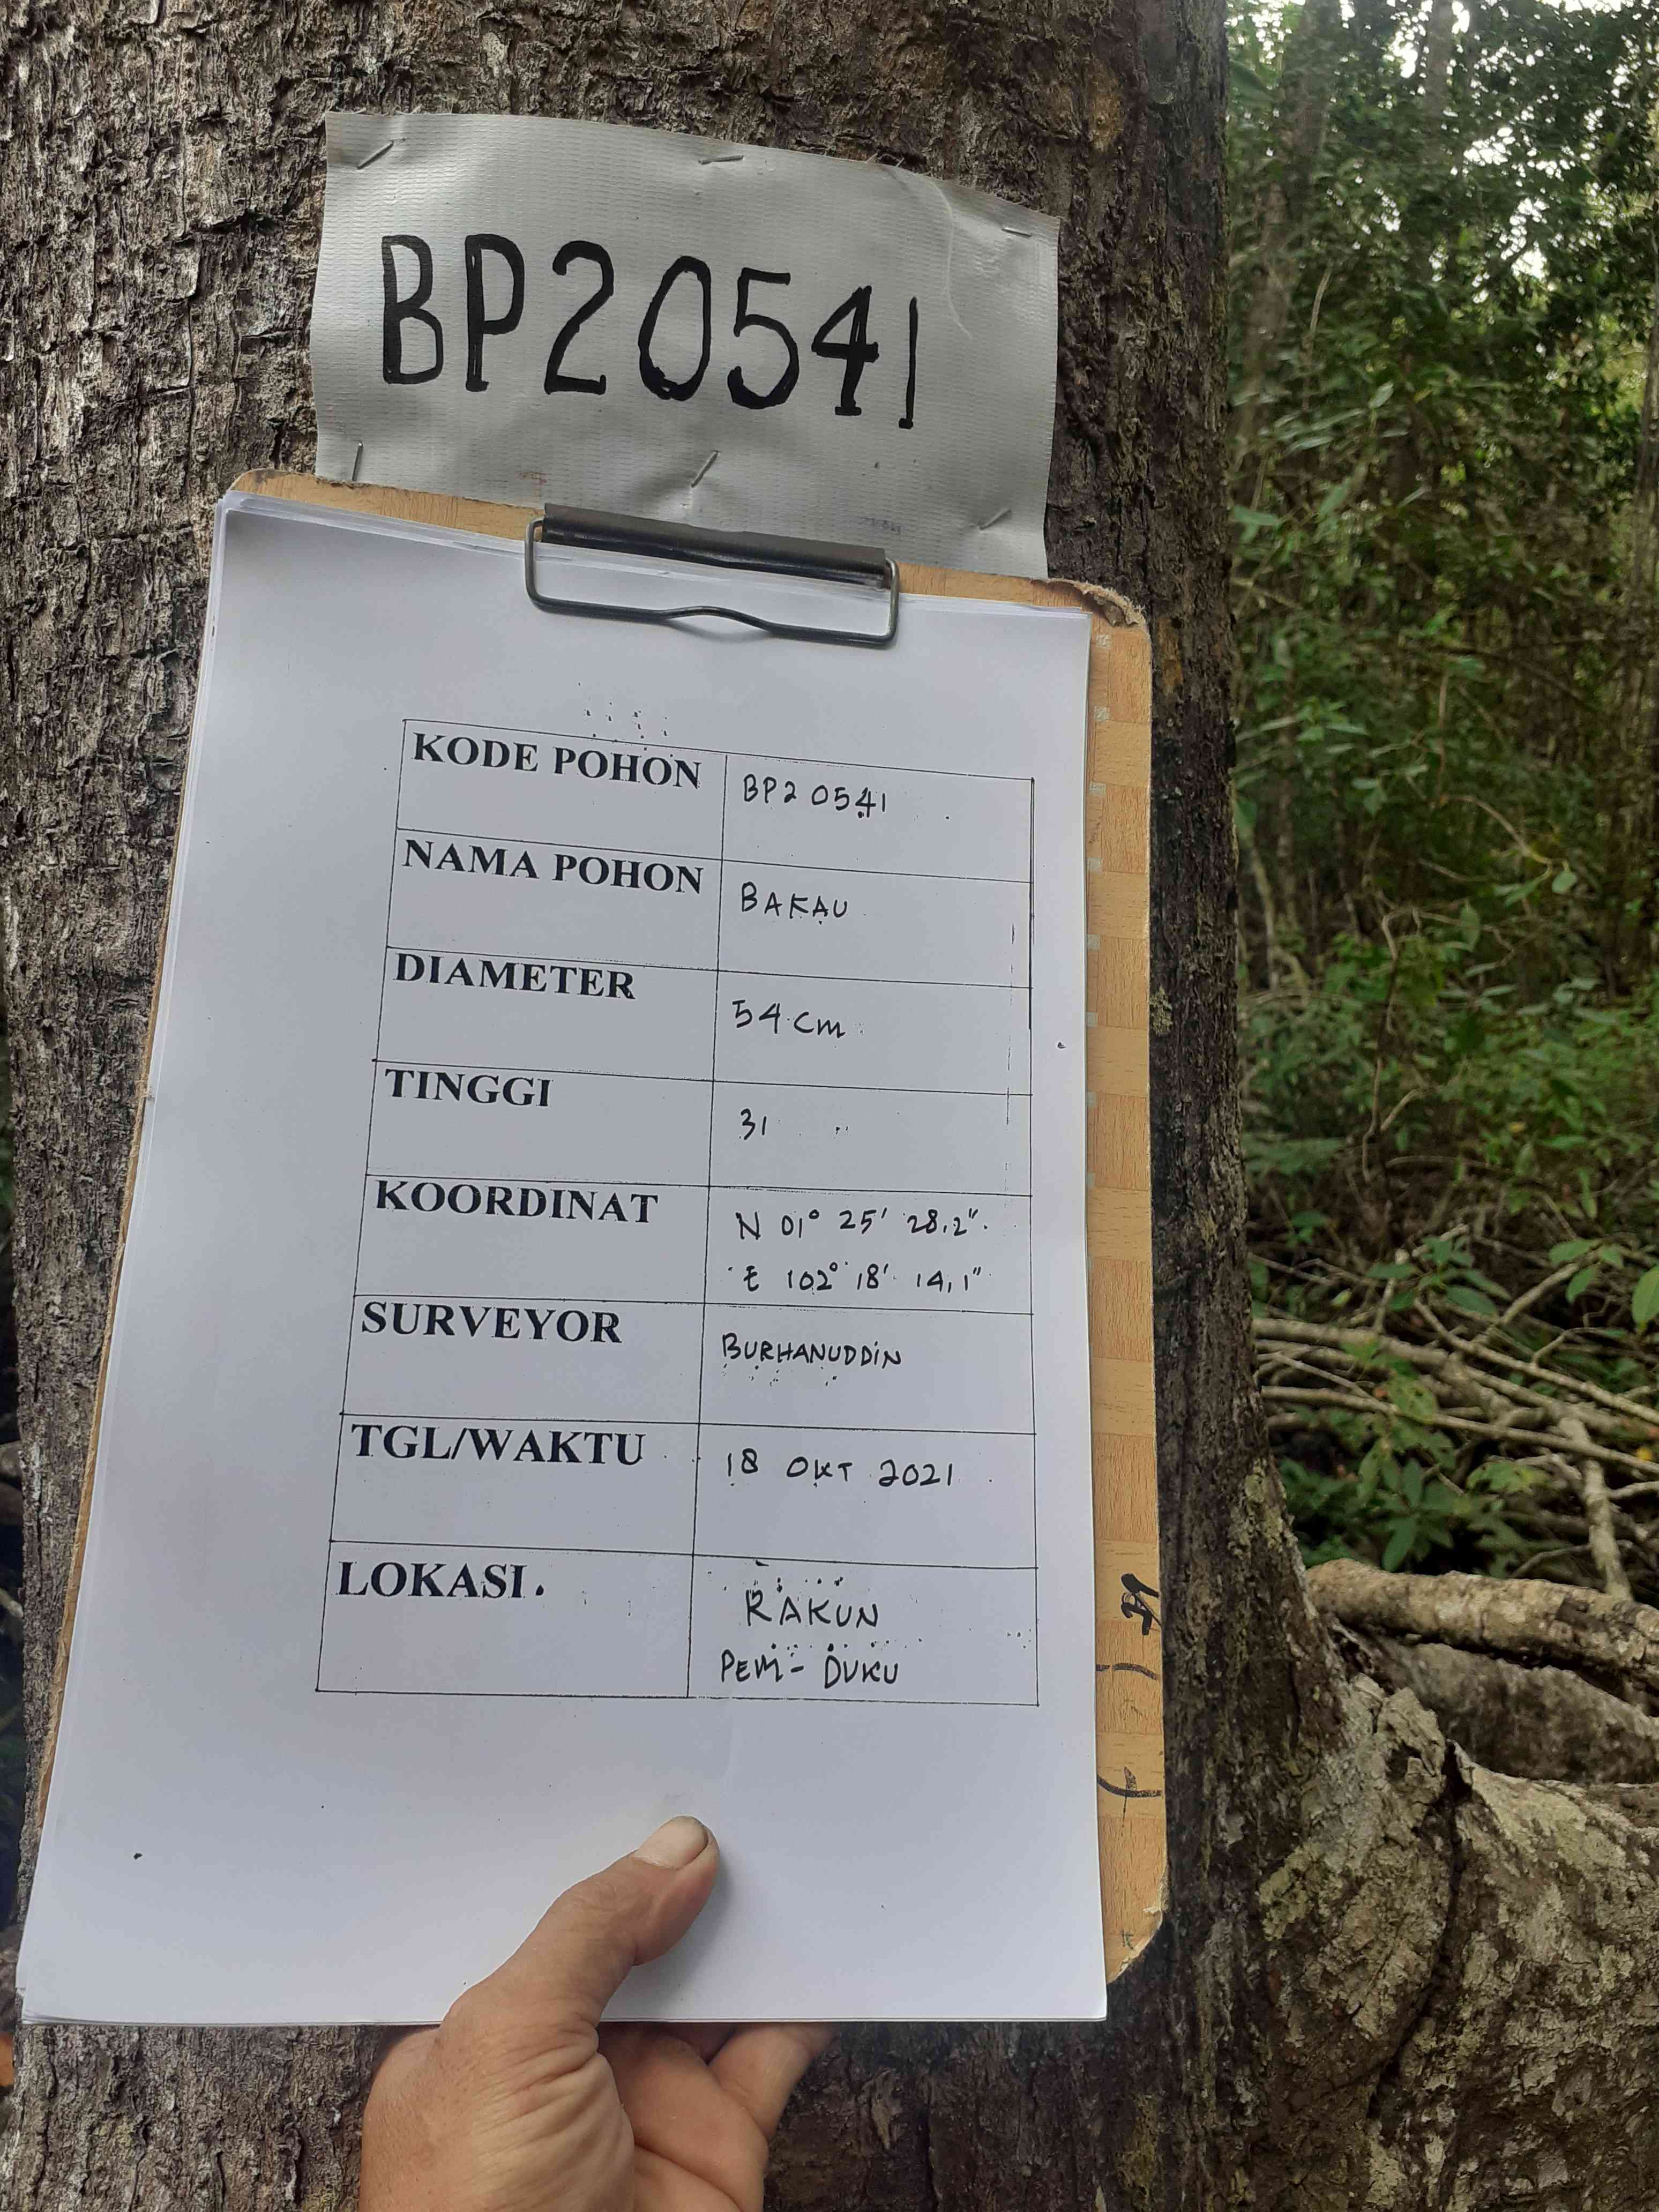 BP20541
KODE POHON BP20541
NAMA POHON BAKAU
DIAMETER 54 cm
TINGGI 31
KOORDINAT N 01° 25' 28,2"
E 102° 18' 14,1"
SURVEYOR BURHANUDDIN
TGL/WAKTU 18 OKT 2021
LOKASI. RAKUN
PEM- DUKU